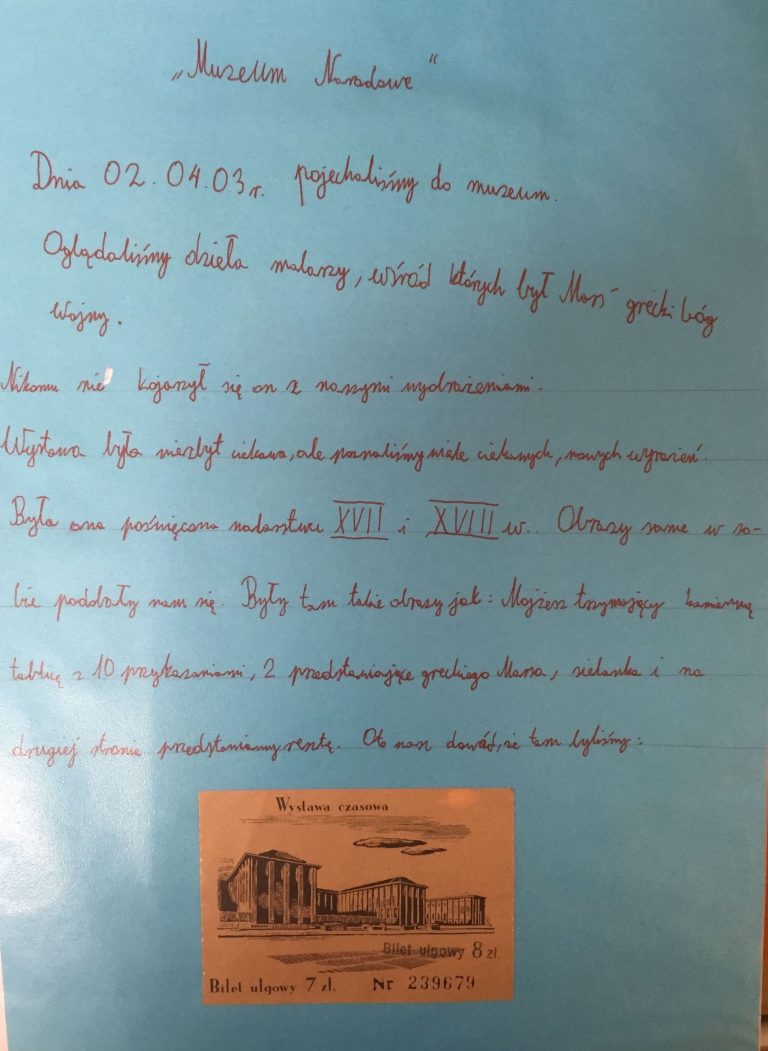 „Muzeum Narodowe"
Dnia 02.04.03r. pojechaliśmy do muzeum.
Oglądaliśmy dzieła malarzy, wśród których był Mars - grecki bóg
wojny.
Nikomu nie kojarzył się on z naszymi wydrażeniami.
Wystawa była niezbyt ciekawa, ale poznaliśmy wiele ciekawych, nowych wyrażeń.
Była ona poświęcona malarstwu XVII i XVIII w.. Obrazy same w so-
bie podobały nam się. Były tam takie obrazy jak: Mojżesz trzymający kamienną
tablicę z 10 przykazaniami, 2 przedstawiające greckiego Marsa, sielanka i na
drugiej stronie przedstawiamy resztę. Oto nasz dowód, że tam byliśmy:
Wystawa czasowa
Bilet ulgowy 8 zł.
Bilet ulgowy 7 zł. Nr 239679